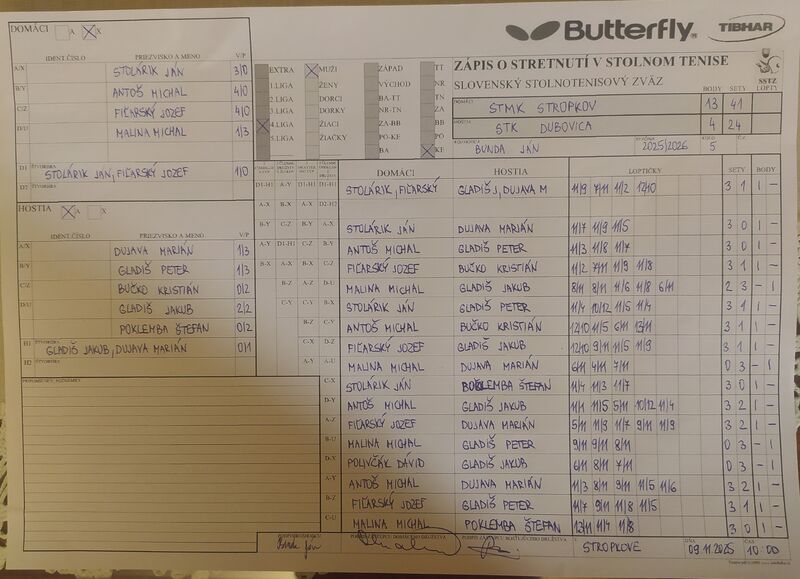 DOMÁCI A X
Butterfly TIBHAR
IDENT.ČÍSLO PRIEZVISKO A MENO V/P
A/X STOLÁRIK JÁN 3/0
B/Y ANTOŠ MICHAL 4/0
C/Z FIĽARSKÝ JOZEF 4/0
D/U MALINA MICHAL 1/3
D1 ŠTVORHRA STOLÁRIK JÁN, FIĽARSKÝ JOZEF 1/0
D2
HOSTIA A X
IDENT.ČÍSLO PRIEZVISKO A MENO V/P
A/X DUJAVA MARIÁN 1/3
B/Y GLADIŠ PETER 1/3
C/Z BUČKO KRISTIÁN 0/2
D/U GLADIŠ JAKUB 2/2
POKLEMBA ŠTEFAN 0/2
H1 ŠTVORHRA GLADIŠ JAKUB, DUJAVA MARIÁN 0/1
H2
PRIPOMIENKY, POZNÁMKY:
EXTRA MUŽI ZÁPAD TT
1.LIGA ŽENY VÝCHOD NR
2.LIGA DORCI BA-TT TN
3.LIGA DORKY NR-TN ZA
4.LIGA ŽIACI ZA-BB BB
5.LIGA ŽIAČKY PO-KE PO
BA KE
ZÁPIS O STRETNUTÍ V STOLNOM TENISE
SLOVENSKÝ STOLNOTENISOVÝ ZVÄZ
SSTZ
BODY SETY LOPTY
DOMÁCI STMK STROPKOV 13 41
HOSTIA STK DUBOVICA 4 24
BUNDA JÁN 2025/2026 5
DOMÁCI HOSTIA LOPTIČKY SETY BODY
D1-H1 A-Y D1-H1 STOLÁRIK, FIĽARSKÝ GLADIŠ J, DUJAVA M 11/9 7/11 11/2 12/10 3 1 1 -
A-X B-X D2-H2
B-Y C-Z B-Y A-X STOLÁRIK JÁN DUJAVA MARIÁN 11/7 11/9 11/5 3 0 1 -
A-Y D1-H1 C-Z B-Y ANTOŠ MICHAL GLADIŠ PETER 11/3 11/8 11/7 3 0 1 -
B-X A-X B-X C-Z FIĽARSKÝ JOZEF BUČKO KRISTIÁN 11/2 7/11 11/9 11/8 3 1 1 -
B-Z A-Z D-U MALINA MICHAL GLADIŠ JAKUB 8/11 8/11 11/6 11/8 6/11 2 3 - 1
C-Y C-Y A-Y STOLÁRIK JÁN GLADIŠ PETER 11/4 10/12 11/5 11/4 3 1 1 -
B-Z C-Y B-Z ANTOŠ MICHAL BUČKO KRISTIÁN 12/10 11/5 6/11 13/11 3 1 1 -
C-X D-Z FIĽARSKÝ JOZEF GLADIŠ JAKUB 12/10 9/11 11/5 11/9 3 1 1 -
A-Y A-U MALINA MICHAL DUJAVA MARIÁN 6/11 4/11 7/11 0 3 - 1
C-X STOLÁRIK JÁN POKLEMBA ŠTEFAN 11/4 11/3 11/7 3 0 1 -
D-Y ANTOŠ MICHAL GLADIŠ JAKUB 11/1 11/5 5/11 10/12 11/4 3 2 1 -
A-Z FIĽARSKÝ JOZEF DUJAVA MARIÁN 5/11 11/9 11/7 9/11 11/9 3 2 1 -
B-U MALINA MICHAL GLADIŠ PETER 9/11 9/11 8/11 0 3 - 1
D-X POLIVČÁK DÁVID GLADIŠ JAKUB 6/11 8/11 7/11 0 3 - 1
A-Y ANTOŠ MICHAL DUJAVA MARIÁN 11/3 8/11 9/11 11/5 11/6 3 2 1 -
B-Z FIĽARSKÝ JOZEF GLADIŠ PETER 11/7 9/11 11/8 11/5 3 1 1 -
C-U MALINA MICHAL POKLEMBA ŠTEFAN 13/11 11/4 11/8 3 0 1 -
STROPKOVE DŇA 09.11.2025 ČAS 10:00